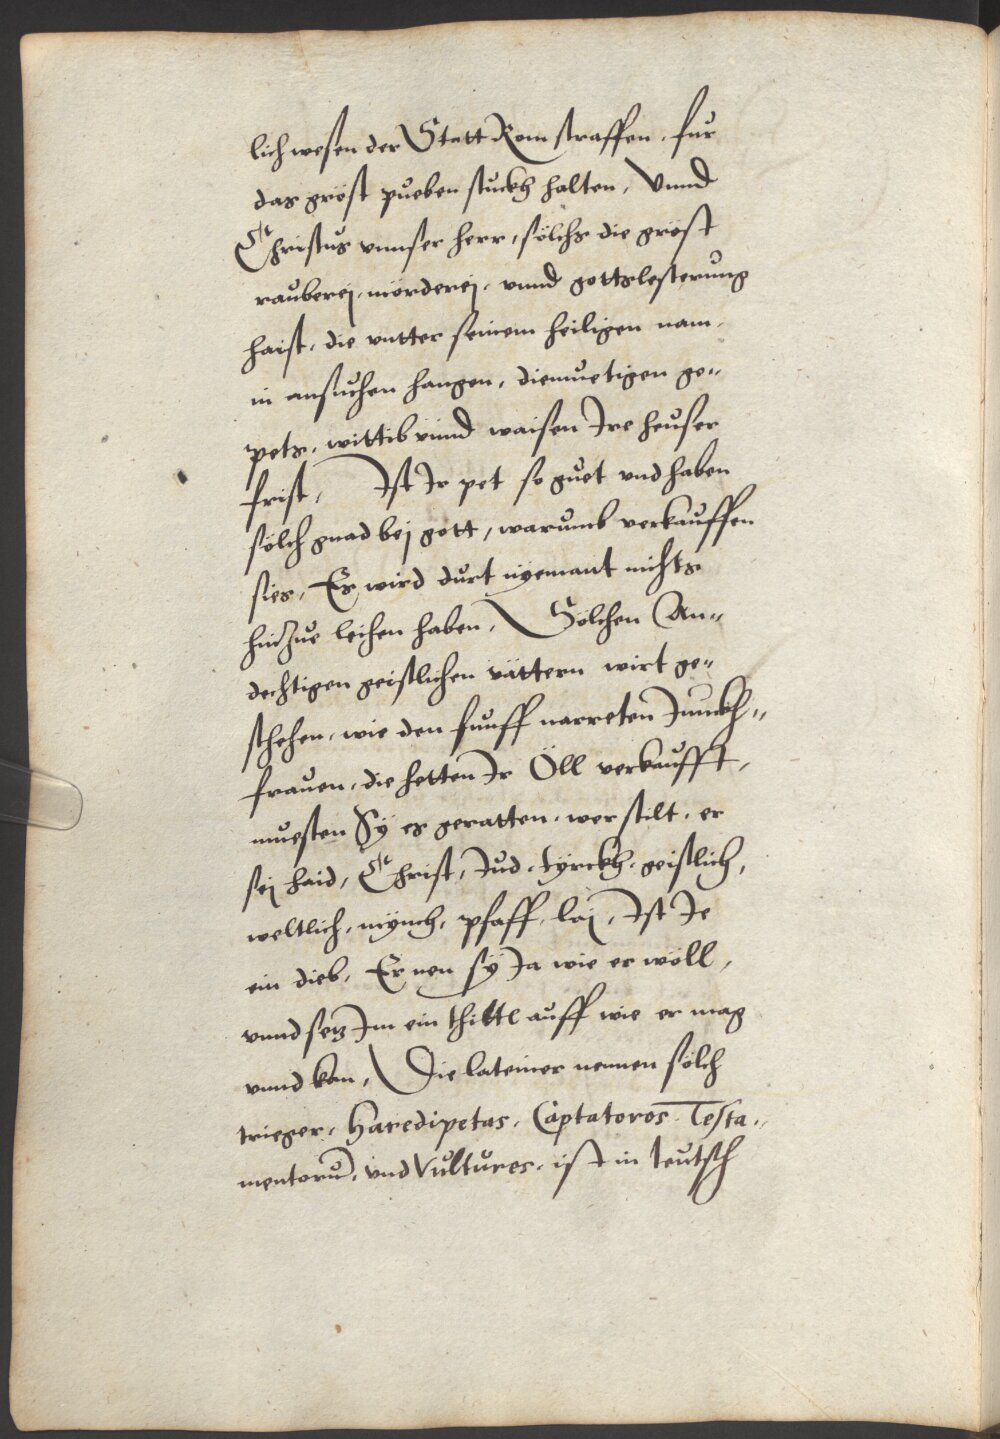 lich wesen der Statt Rom straffen, fur
das gröst pueben stuckh halten, Vnnd
Christus vnnser herr, sölchs die gröst
rauberej, mörderej, vnnd gottslesterung
haist, die vntter seinem heiligen nam,
in ansuchen hangen, diemuetigen ge„
pets, wittib vnnd waisen Ire heuser
frist, Ist Ir pet so guet vnd haben
sölch gnad bej gott, warumb verkauffen
sies, Es wird durt nyemant nichts
hin zue leihen haben, Sölchen An„
dechtigen geistlichen vättern wirt ge„
schehen, wie den funff narreten Junckh„
frauen, die hetten Ir Öll verkaufft,
muesten Sÿ es geratten, wer stilt, er
sej haid, Christ, Jud, tyrckh, geistlich,
weltlich, mynch, pfaff, laj, Ist Je
ein dieb, Er nen sÿ Ja wie er wöll,
vnnd setz Im ein thittl auff wie er mag
vnnd kan, Die lateiner nennen sölch
trieger, Haredipetas, Captatores Testa„
mentorū, vnd Vultures, ist in teutsch